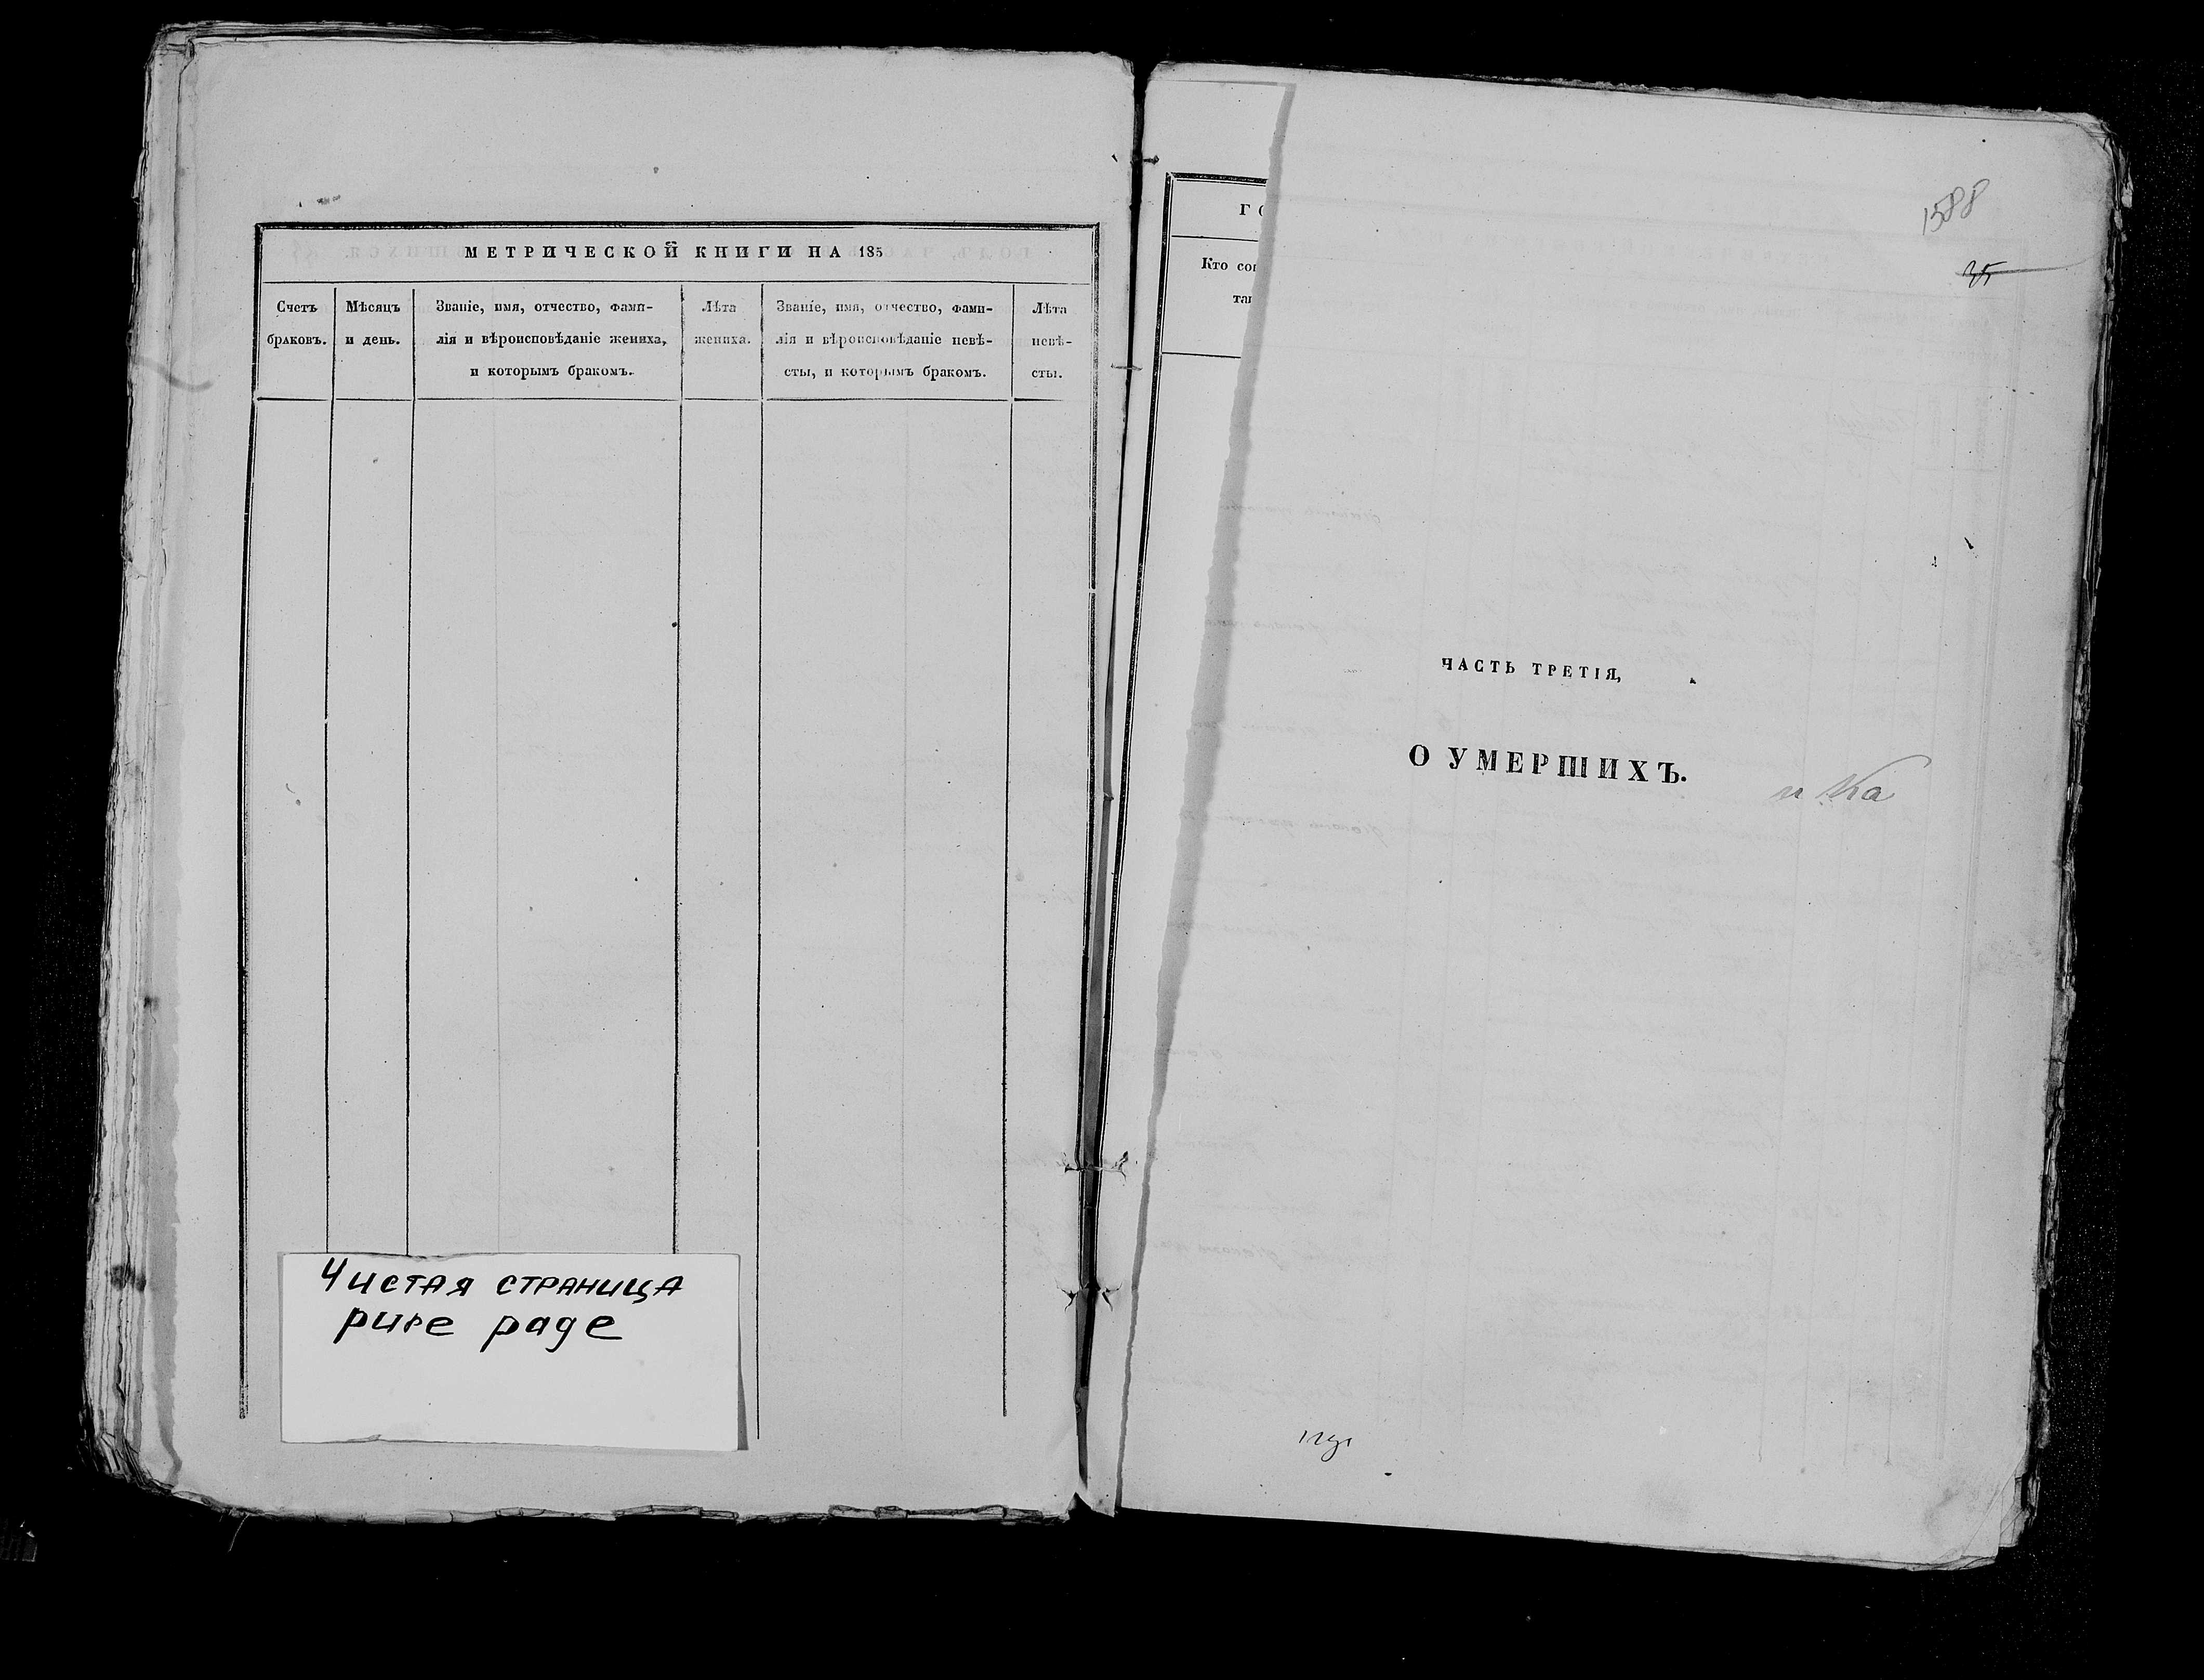 МЕТРИЧЕСКОЙ КНИГИ НА 185
Счетъ браковъ.
Мѣсяцъ и день.
Званіе, имя, отчество, фами-
лія и вѣроисповѣданіе жениха,
и которымъ бракомъ.
Лѣта
жениха.
Званіе, имя, отчество, фами-
лія и вѣроисповѣданіе невѣ-
сты, и которымъ бракомъ.
Лѣта
невѣ-
сты.
Чистая страница
pure page
ГО
Кто сов
таи
1588
35
ЧАСТЬ ТРЕТІЯ,
О УМЕРШИХЪ.
и Ка